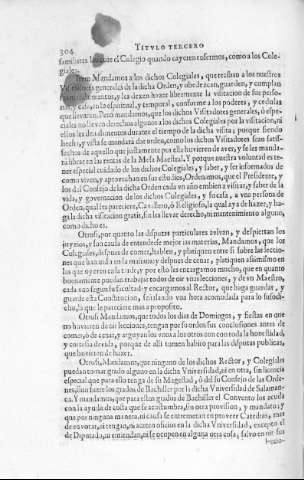 304 TITVLO TERCERO
familiares la que el Colegio quando cayeren enfermos, como a los Cole-
giales.
Iten Mandamos a los dichos Colegiales, que reciban a los nuestros
Visitadores generales de la dicha Orden, y obedezcan, guarden, y cumplan
sus mandamientos, y les dexen hazer libremente la visitacion de sus perso-
nas, y casa, en lo espiritual, y temporal, conforme a los poderes, y cedulas
que llevaran. Pero mandamos, que los dichos Visitadores generales, ò espe-
ciales no lleven derechos algunos a los dichos Colegiales por la visitacion, ni
ellos les den alimentos durante el tiempo de la dicha visita; porque siendo
hecha, y vista se mandará dar orden, como los dichos Visitadores sean satis-
fechos de aquello que justamente por ella huvieren de aver, y se les manda-
rà librar en las rentas de la Mesa Maestral. Y porque nuestra voluntad es te-
ner especial cuidado de los dichos Colegiales, y saber, y ser informados de
como viven, y aprovechan en sus estudios, Ordenamos, que el Presidente, y
los del Consejo de la dicha Orden cada vn año embien a visitar, y saber de la
vida, y governacion de los dichos Colegiales, y su casa, a vna persona de
Orden, qual les pareciere, Cavallero, ò Religioso, la qual aya de hazer, y ha-
ga la dicha visitacion gratis, sin les llevar derecho, ni mantenimiento alguno,
como dicho es.
Otrosi, por quanto las disputas particulares avivan, y despiertan los
juyzios, y son causa de entender mejor las materias, Mandamos, que los
Colegiales, despues de comer, hablen, y platiquen entre si sobre las leccio-
nes que han oido en la mañana, y despues de cenar, platiquen assimismo en
las que oyeron en la tarde; y por ello les encargamos mucho, que en quanto
buenamente puedan trabajar todos de oir vnas lecciones, y de vn Maestro,
cada vno segun su facultad, y encargamos al Rector, que haga guardar, y
guarde esta Constitucion, señalando vna hora acomodada para lo susodi-
cho, la que le pareciere mas a proposito.
Otrosi Mandamos, que todos los dias de Domingos, y fiestas en que
no huvieren de oir lecciones, tengan por su orden sus conclusiones antes de
comer, ò de cenar, y arguyan los vnos a los otros con con toda la honestidad,
y cortesia devida, porque de alli tomen habito para las disputas publicas,
que huvieren de hazer.
Otrosi, Mandamos, que ninguno de los dichos Rector, y Colegiales
puedan tomar grado alguno en la dicha Vniversidad, ni en otra, sin licencia
especial que para ello tenga de su Magestad, ò del su Consejo de las Orde-
nes, sino fuere los grados de Bachiller por la dicha Vniversidad de Salaman-
ca. Y Mandamos, que para estos grados de Bachiller el Convento los acuda
con la ayuda de costa que se acostumbra, sin otra provision, y mandato; y
que por ninguna manera, ni causa se entremetan en proveer Catedras, ni en
dar votos, ni tengan, ni acepten oficios en la dicha Vniversidad, excepto el
de Diputado, ni entiendan, ni se ocupen en alguna otra cosa, salvo en oir sus